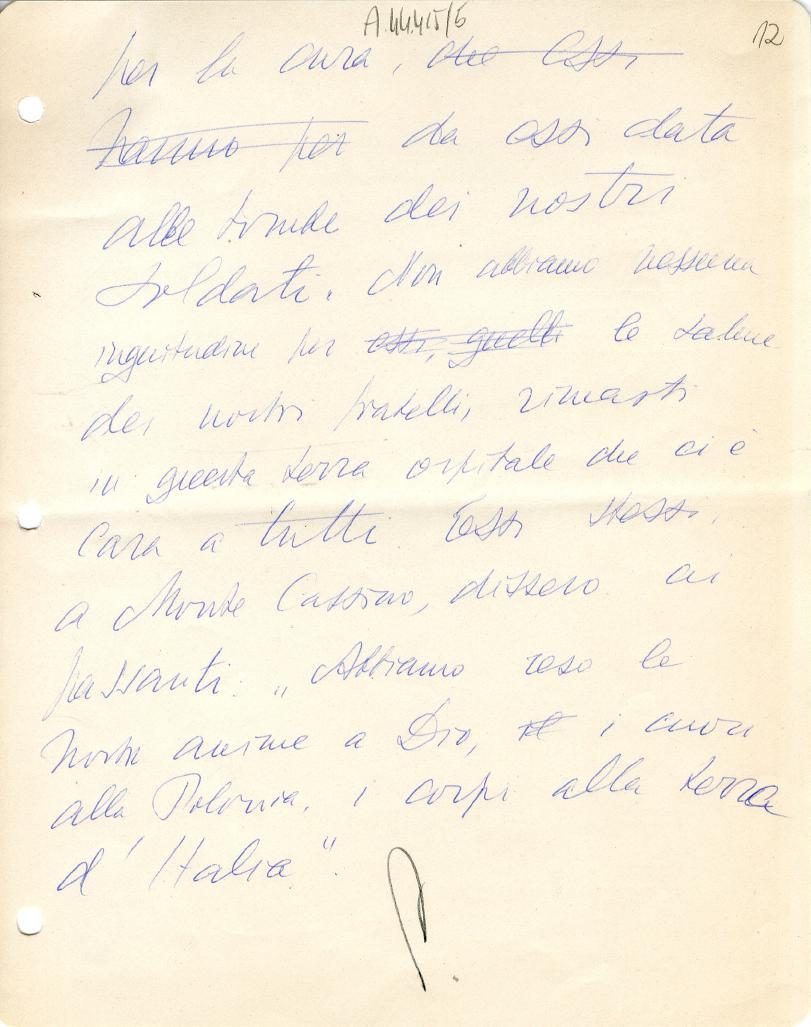 A.44.415/6
12
per la cura, che Essi
hanno per da essi data
alle tombe dei nostri
soldati. Non abbiamo nessuna
inquitudine per essi, quelli le salme
dei nostri fratelli, rimasti
in questa terra ospitale che ci è
cara a tutti Essi stessi,
a Monte Cassino, dissero ai
passanti: „Abbiamo reso le
nostre anime a Dio, i cuori
alla Polonia, i corpi alla terra
d'Italia".